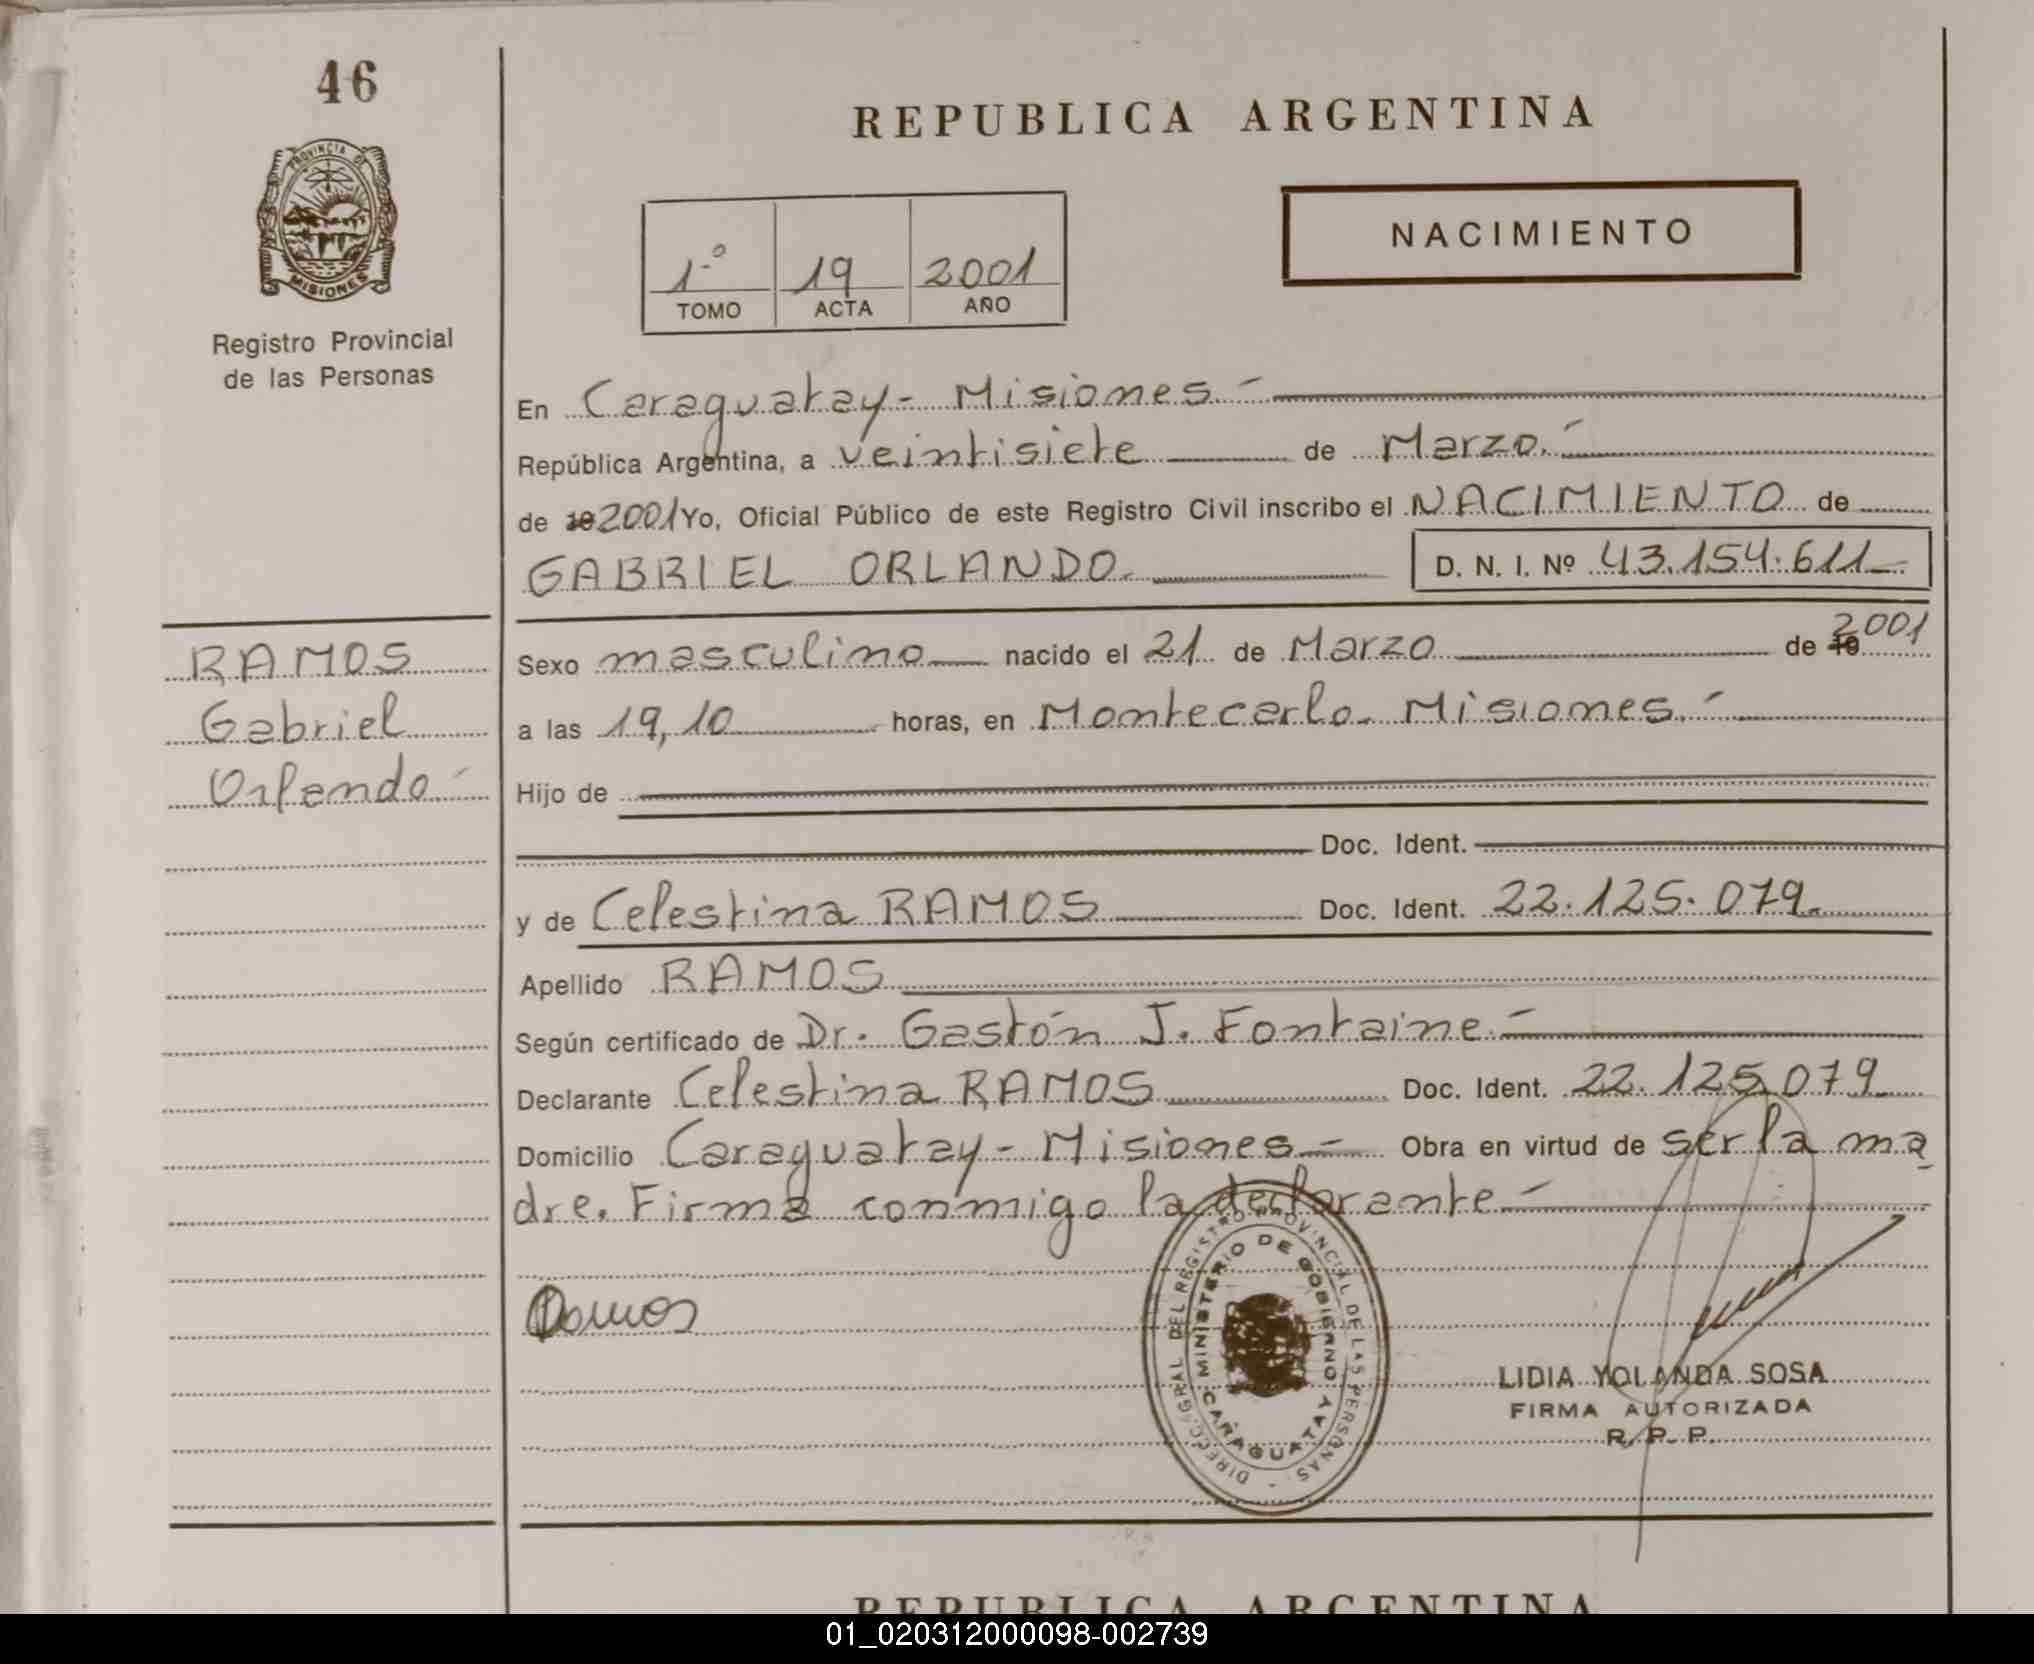 46
PROVINCIA DE
MISIONES
Registro Provincial
de las Personas
REPUBLICA ARGENTINA
NACIMIENTO
1º 19 2001
TOMO ACTA AÑO
En Caraguatay - Misiones -
República Argentina, a veintisiete de Marzo.-
de 19 2001 Yo, Oficial Público de este Registro Civil inscribo el NACIMIENTO de
GABRIEL ORLANDO. D. N. I. Nº 43.154.611
RAMOS
Gabriel
Orlando -
Sexo masculino nacido el 21 de Marzo de 19 2001
a las 19,10 horas, en Montecarlo - Misiones.-
Hijo de
Doc. Ident.
y de Celestina RAMOS Doc. Ident. 22.125.079.
Apellido RAMOS
Según certificado de Dr. Gastón J. Fontaine.-
Declarante Celestina RAMOS Doc. Ident. 22.125.079
Domicilio Caraguatay - Misiones - Obra en virtud de ser la ma
dre. Firma conmigo la declarante -
Ramos
DIRECC. GRAL DEL REGISTRO PROVINCIAL DE LAS PERSONAS
MINISTERIO DE GOBIERNO
CARAGUATAY
LIDIA YOLANDA SOSA
FIRMA AUTORIZADA
R. P. P.
REPUBLICA ARGENTINA
01_020312000098-002739